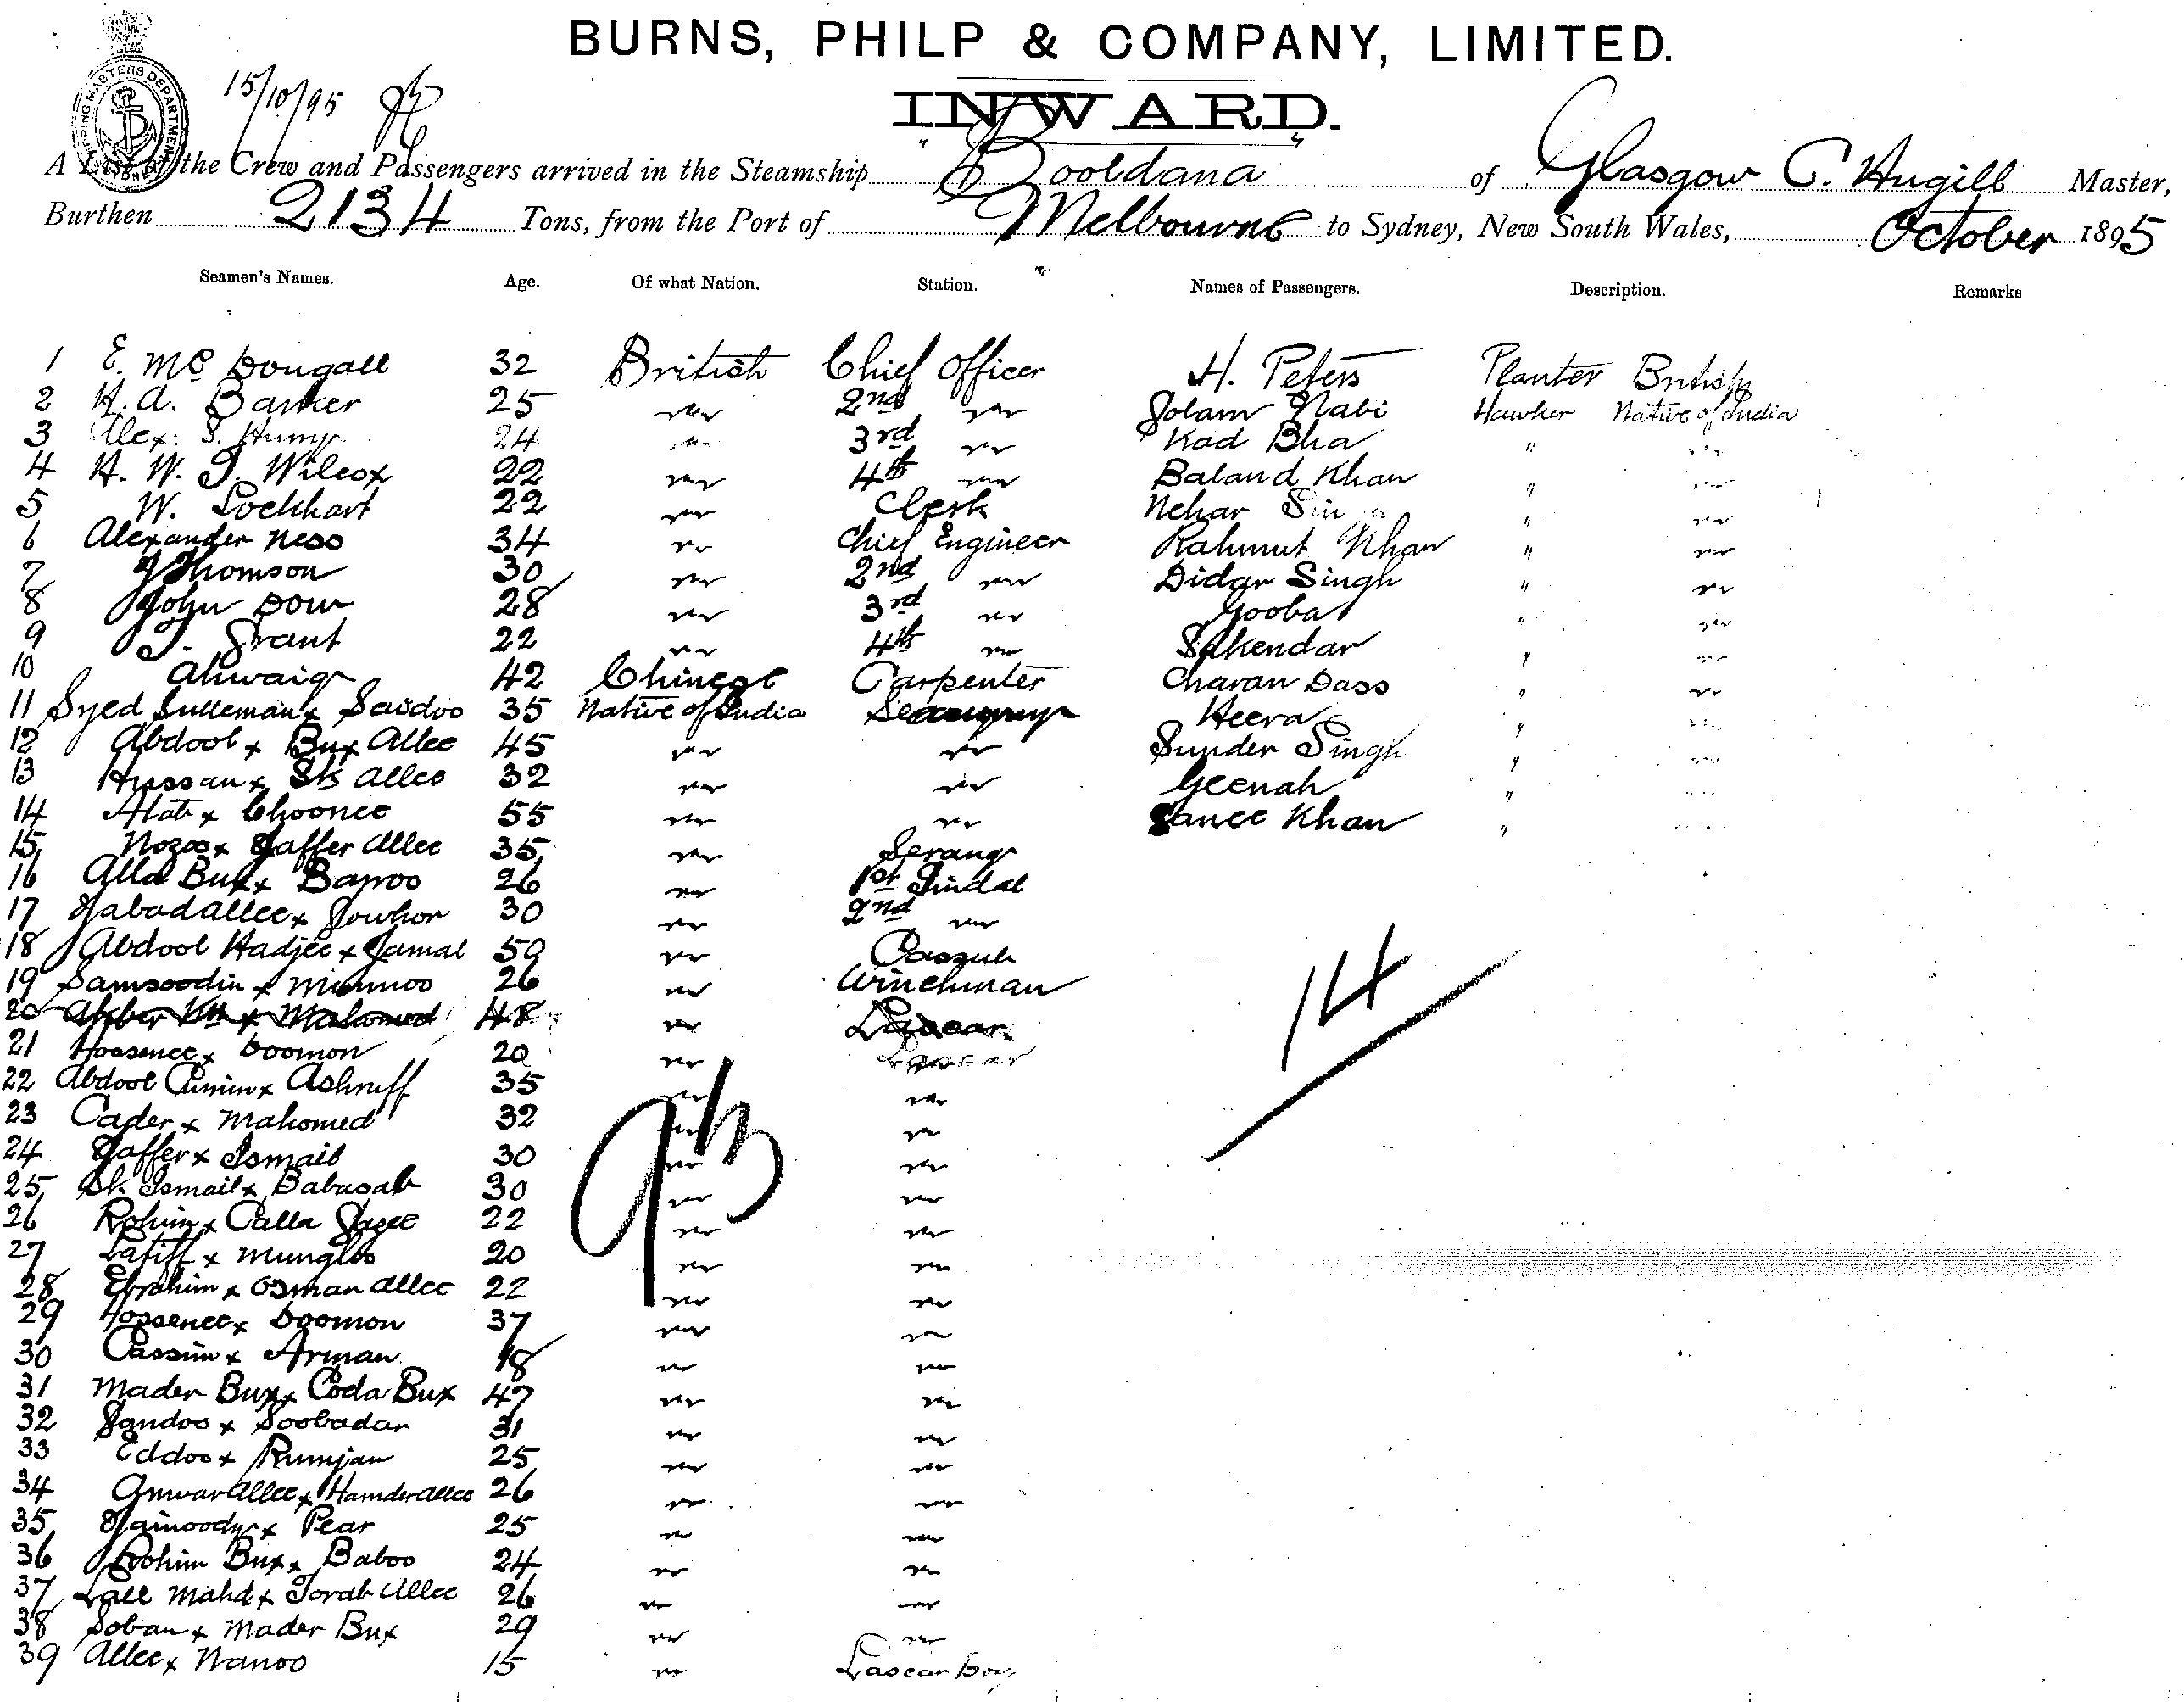 BURNS, PHILP & COMPANY, LIMITED.
INWARD.
15/10/95
A List of the Crew and Passengers arrived in the Steamship Booldana of Glasgow C. Hugill Master,
Burthen 2134 Tons, from the Port of Melbourne to Sydney, New South Wales, October 1895
Seamen's Names. Age. Of what Nation. Station. Names of Passengers. Description. Remarks
1 E. Mc Dougall 32 British Chief Officer H. Peters Planter British
2 H. A. Barker 25 " 2nd " Golam Nabi Hawker Native of India
3 Alex. S. 24 " 3rd " Kad Bha " "
4 H. W. J. Wilcox 22 " 4th " Baland Khan " "
5 W. Lockhart 22 " Clerk Nehar " "
6 Alexander Ness 34 " Chief Engineer Rahmut Khan " "
7 J Thomson 30 " 2nd " Didar Singh " "
8 John Dow 28 " 3rd " Gooba " "
9 J. Grant 22 " 4th " Sakendar " "
10 Ahwaig 42 Chinese Carpenter Charan Dass " "
11 Syed Sulleman x Saidoo 35 Native of India Heera " "
12 Abdool x Bux Allee 45 " " Sunder Singh " "
13 Hussan x Sk Allee 32 " " Geenah " "
14 x Choonee 55 " " Khan " "
15 x Jaffer Allee 35 " Serang
16 Alla Bux x Banoo 26 " 1st Tindal
17 Jabadallee x Jowhor 30 " 2nd "
18 Abdool Hadjee x Jamal 50 " Cassub
19 Samsoodin x 26 " Winchman
20 Akber Kh x Mahomed 48 " Lascar
21 Hossenee x Doomon 20 " Lascar
22 Abdool x Ashruff 35 " "
23 Cader x Mahomed 32 " "
24 Jaffer x Ismail 30 " "
25 Sk. Ismail x Babasab 30 " "
26 Rohim x Calla Gazee 22 " "
27 Latiff x Mungloo 20 " "
28 Ebrahim x Osman Allee 22 " "
29 Hossenee x Doomon 37 " "
30 Cassim x Arman 18 " "
31 Mader Bux x Coda Bux 47 " "
32 x Soobadar 31 " "
33 Eddoo x Rumjan 25 " "
34 Anwar Allee x Hamder Allee 26 " "
35 Jainoody x Pear 25 " "
36 Rohim Bux x Baboo 24 " "
37 Lall Mahd x Torab Allee 26 " "
38 Soban x Mader Bux 29 " "
39 Allee x Nanoo 15 " Lascar boy
14